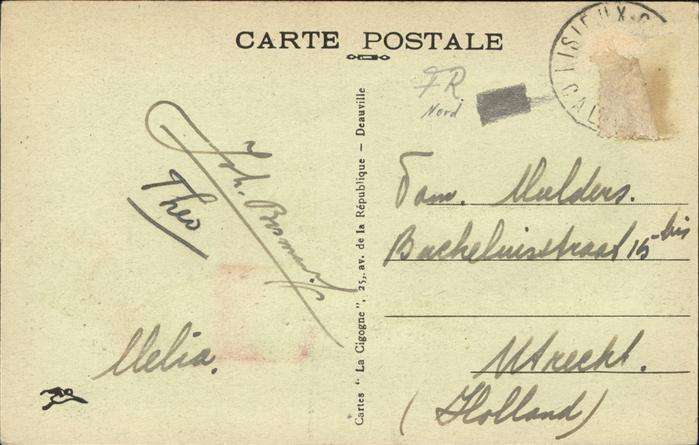 CARTE POSTALE
LISIEUX
CAL
FR
Nord
Joh. Bosman
Theo
Melia.
Fam. Mulders.
Bacheluisstraat 15 bis
Utrecht.
(Holland)
Cartes " La Cigogne ", 25, av. de la République - Deauville